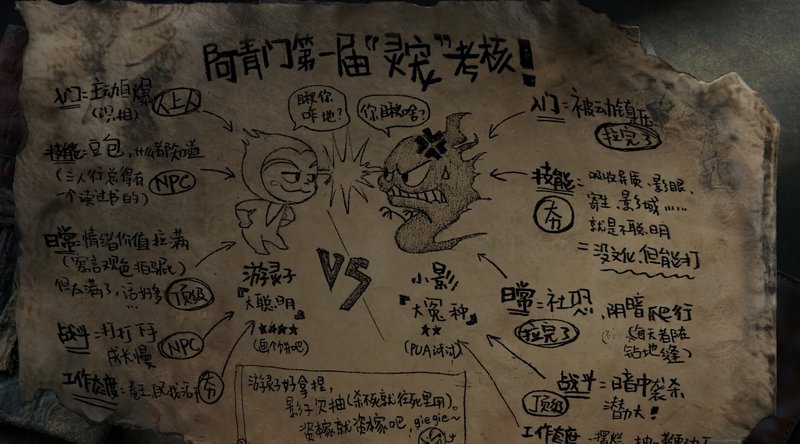 阿青门第一届“灵宠”考核！
入门：主动自爆
（识相）
人上人
技能：豆包，什么都知道
（三人行总得有
一个读过书的）
NPC
日常：情绪价值拉满
（察言观色拍马屁）
但太满了，话好多
顶级
战斗：打打下手
成长慢
NPC
工作态度：
夯
瞅你
咋地？
你瞅啥？
游灵子
『大聪明』
★★★★
（画个饼吧）
VS
小影
『大冤种』
★★
（PUA试试）
入门：被动镇压
拉完了
技能：吸收异质、影眼、
寄生、影域……
就是不聪明
=没文化，但能打
夯
日常：社恐
阴暗爬行
每天都在
钻地缝）
拉完了
战斗：暗中袭杀
潜力大！
顶级
工作态度：摆烂
游灵子好拿捏，
影子欠抽（杀不死就往死里用）。
资稼就资稼吧，giegie~